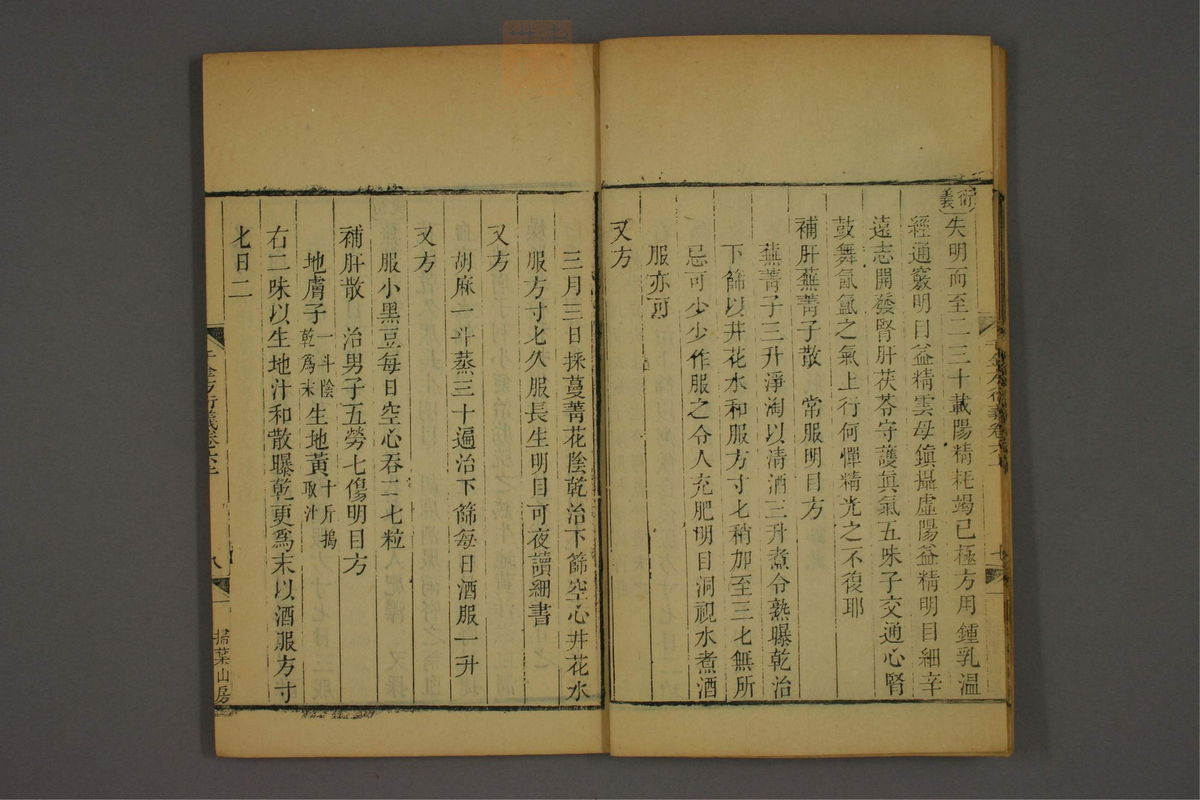 衍義
失明而至二三十載陽精耗竭已極方用鍾乳溫
經通竅明目益精雲母鎮攝虛陽益精明目細辛
遠志開發腎肝茯苓守護眞氣五味子交通心腎
鼓舞氤氳之氣上行何憚精光之不復耶
補肝蕪菁子散　常服明目方
蕪菁子三升淨淘以清酒三升煮令熟曝乾治
下篩以井花水和服方寸匕稍加至三匕無所
忌可少少作服之令人充肥明目洞視水煮酒
服亦可
又方
三月三日採蔓菁花陰乾治下篩空心井花水
服方寸匕久服長生明目可夜讀細書
又方
胡麻一斗蒸三十遍治下篩每日酒服一升
又方
服小黑豆每日空心吞二七粒
補肝散　治男子五勞七傷明目方
地膚子一斗陰乾爲末生地黃十斤搗取汁
右二味以生地汁和散曝乾更爲末以酒服方寸
匕日二
千金方衍義卷六上
八
掃葉山房